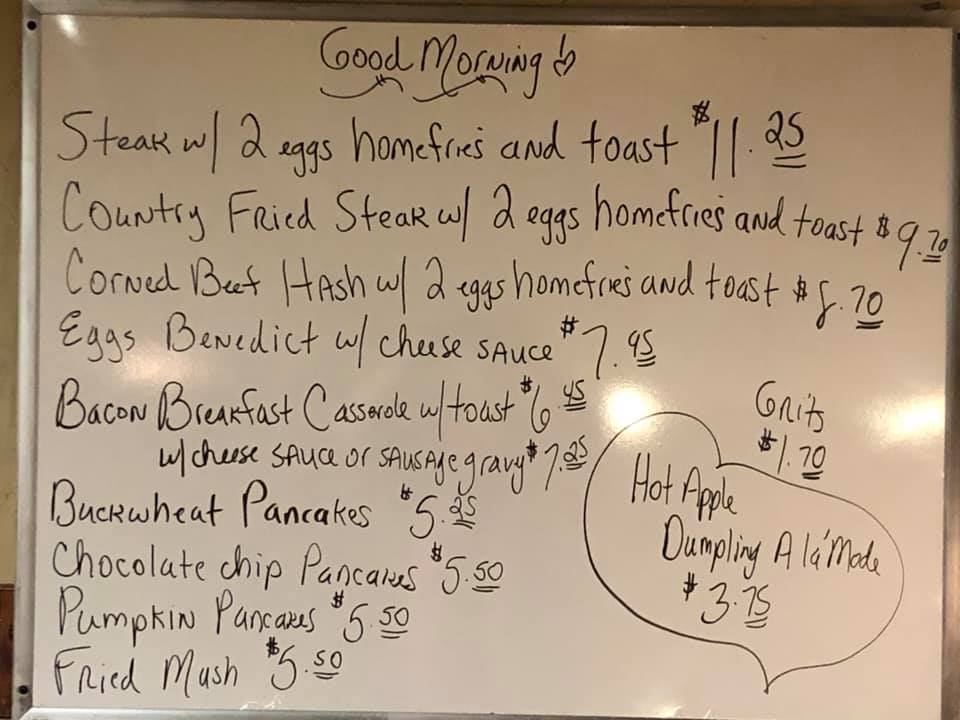 Good Morning
Steak w/ 2 eggs homefries and toast $11.25
Country Fried Steak w/ 2 eggs homefries and toast $9.70
Corned Beef Hash w/ 2 eggs homefries and toast $8.70
Eggs Benedict w/ cheese sauce $7.95
Bacon Breakfast Casserole w/ toast $6.45
w/ cheese sauce or sausage gravy $7.25
Buckwheat Pancakes $5.25
Chocolate chip Pancakes $5.50
Pumpkin Pancakes $5.50
Fried Mush $5.50
Grits
$1.70
Hot Apple
Dumpling A la' Mode
$3.75